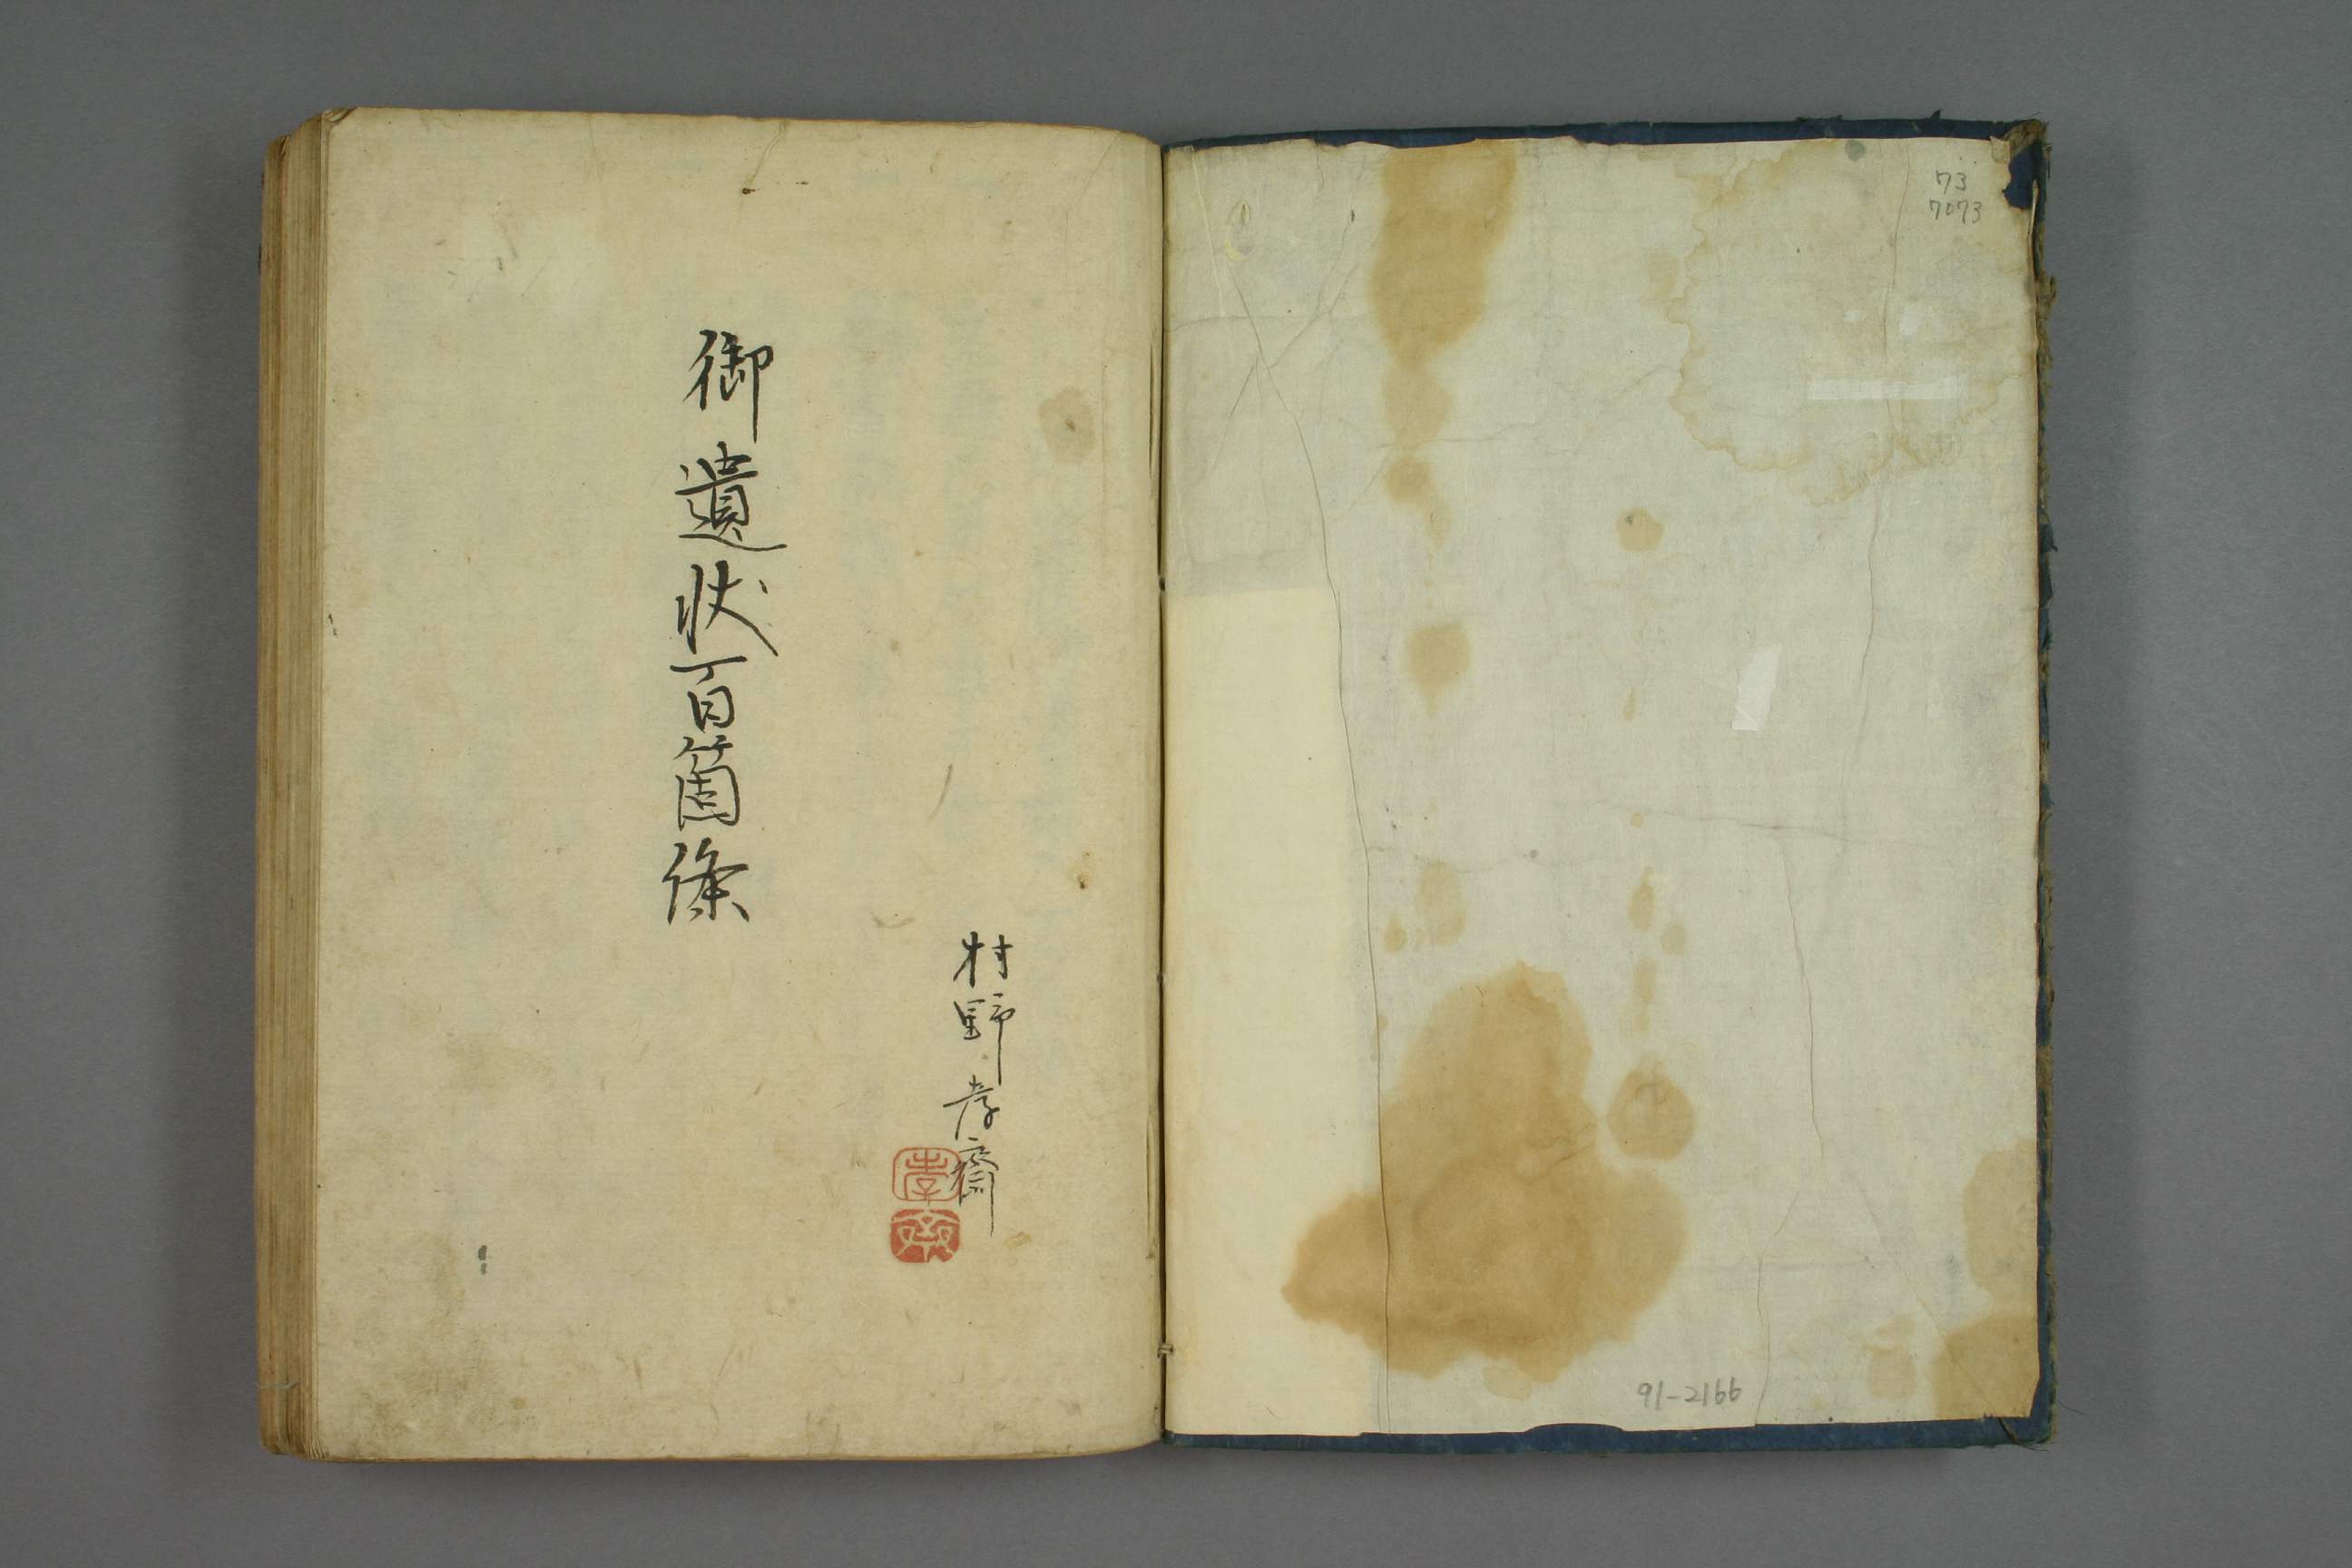 73
7073
91-2166
御遺状百箇條
村野孝齋
孝
齋